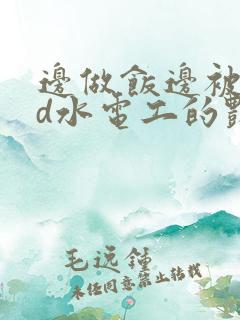 邊做飯邊被
d水電工的
毛远鍾
未经同意禁止转载